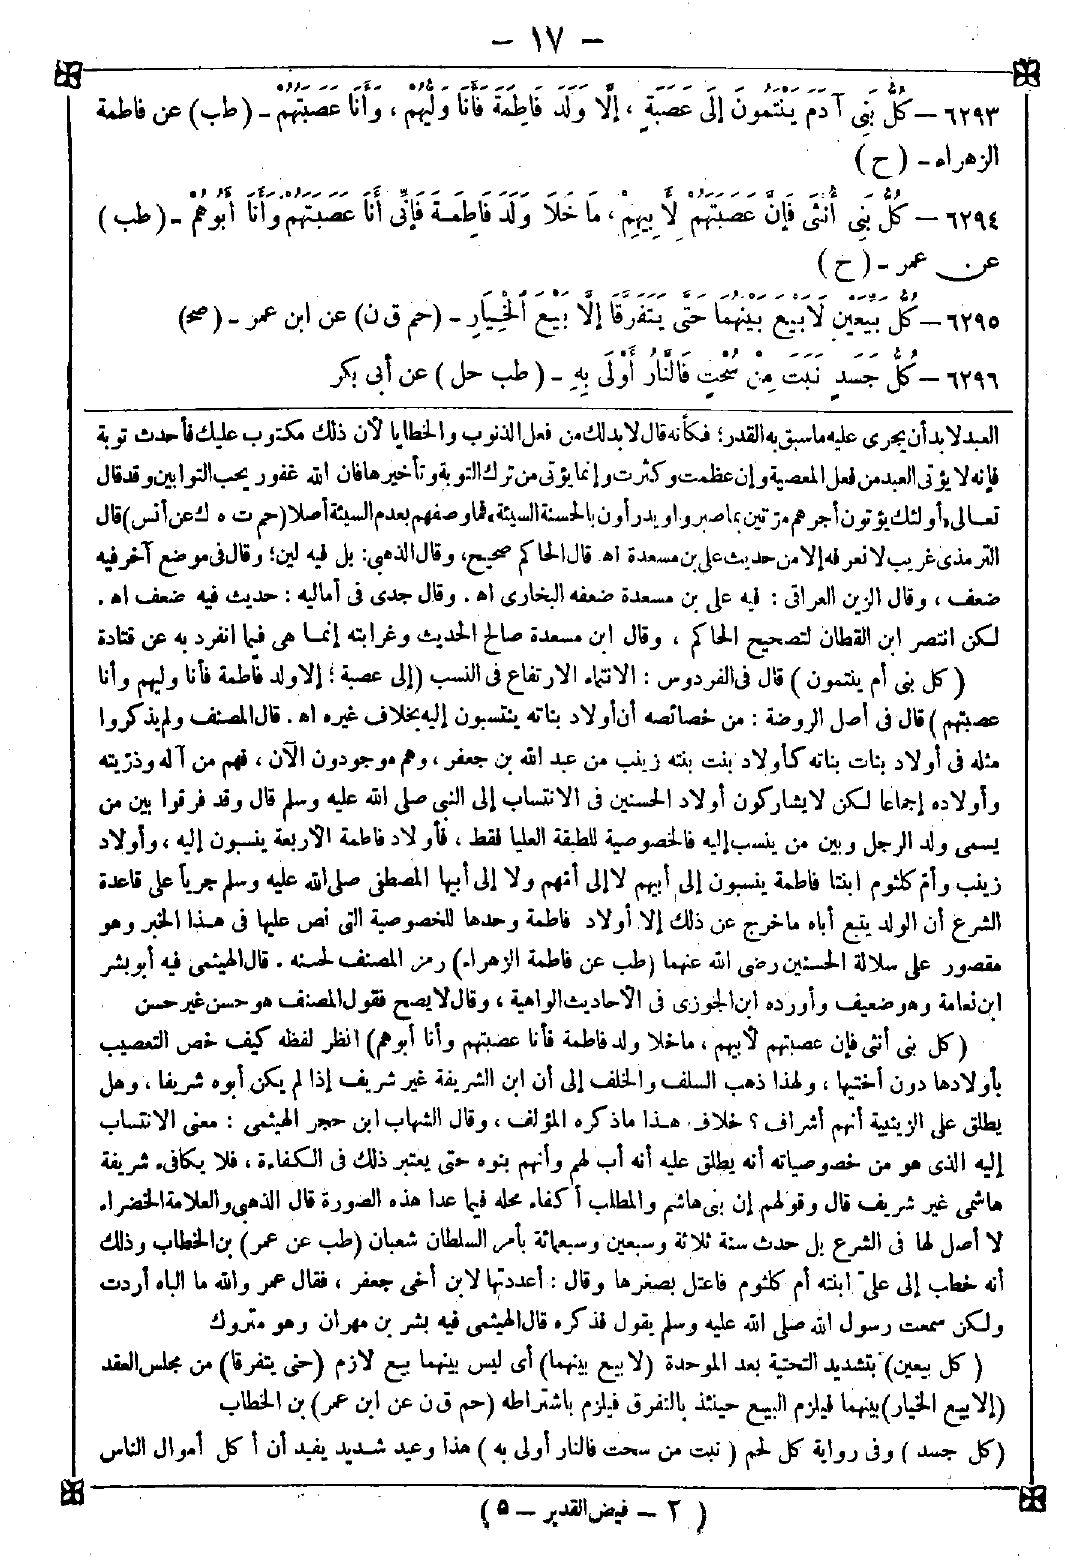 — ١٧ —
٦٢٩٣ — كُلُّ بَنِي آدَمَ يَنْتَمُونَ إِلَى عَصَبَةٍ ، إِلَّا وَلَدَ فَاطِمَةَ فَأَنَا وَلِيُّهُمْ ، وَأَنَا عَصَبَتُهُمْ - ( طب ) عن فاطمة
الزهراء - ( ح )
٦٢٩٤ — كُلُّ بَنِي أُنْثَى فَإِنَّ عَصَبَتَهُمْ لِأَبِيهِمْ ، مَا خَلَا وَلَدَ فَاطِمَةَ فَإِنِّي أَنَا عَصَبَتُهُمْ وَأَنَا أَبُوهُمْ - ( طب )
عن عمر - ( ح )
٦٢٩٥ — كُلُّ بَيِّعَيْنِ لَا بَيْعَ بَيْنَهُمَا حَتَّى يَتَفَرَّقَا إِلَّا بَيْعَ الْخِيَارِ - ( حم ق ن ) عن ابن عمر - ( صح )
٦٢٩٦ — كُلُّ جَسَدٍ نَبَتَ مِنْ سُحْتٍ فَالنَّارُ أَوْلَى بِهِ - ( طب حل ) عن أبى بكر
العبد لا بد أن يجرى عليه ما سبق به القدر ؛ فكأنه قال لا بد لك من فعل الذنوب والخطايا لأن ذلك مكتوب عليك فأحدث توبة
فإنه لا يؤتى العبد من فعل المعصية وإن عظمت وكثرت وإنما يؤتى من ترك التوبة وتأخيرها فان الله غفور يحب التوابين وقد قال
تعالى « أولئك يؤتون أجرهم مرتين بما صبروا ويدرأون بالحسنة السيئة » فما وصفهم بعدم السيئة أصلا (حم ت ه ك عن أنس) قال
الترمذى غريب لا نعرفه إلا من حديث على بن مسعدة اه قال الحاكم صحيح ، وقال الذهبى : بل فيه لين ؛ وقال فى موضع آخر فيه
ضعف ، وقال الزين العراقى : فيه على بن مسعدة ضعفه البخارى اه . وقال جدى فى أماليه : حديث فيه ضعف اه .
لكن انتصر ابن القطان لتصحيح الحاكم ، وقال ابن مسعدة صالح الحديث وغرابته إنما هى فيما انفرد به عن قتادة
( كل بنى أم ينتمون ) قال فى الفردوس : الانتماء الارتفاع فى النسب (إلى عصبة ؛ إلا ولد فاطمة فأنا وليهم وأنا
عصبتهم ) قال فى أصل الروضة : من خصائصه أن أولاد بناته ينتسبون إليه بخلاف غيره اه . قال المصنف ولم يذكروا
مثله فى أولاد بنات بناته كأولاد بنت بنته زينب من عبد الله بن جعفر ، وهم موجودون الآن ، فهم من آله وذريته
وأولاده إجماعا لكن لا يشاركون أولاد الحسنين فى الانتساب إلى النبى صلى الله عليه وسلم قال وقد فرقوا بين من
يسمى ولد الرجل وبين من ينسب إليه فالخصوصية للطبقة العليا فقط ، فأولاد فاطمة الأربعة ينسبون إليه ، وأولاد
زينب وأم كلثوم ابنتا فاطمة ينسبون إلى أبيهم لا إلى أمهم ولا إلى أبيها المصطفى صلى الله عليه وسلم جريا على قاعدة
الشرع أن الولد يتبع أباه ما خرج عن ذلك إلا أولاد فاطمة وحدها للخصوصية التى نص عليها فى هذا الخبر وهو
مقصور على سلالة الحسنين رضى الله عنهما (طب عن فاطمة الزهراء) رمز المصنف لحسنه . قال الهيثمى فيه أبو بشر
ابن نعامة وهو ضعيف وأورده ابن الجوزى فى الأحاديث الواهية ، وقال لا يصح فقول المصنف هو حسن غير حسن
(كل بنى أنثى فإن عصبتهم لأبيهم ، ما خلا ولد فاطمة فأنا عصبتهم وأنا أبوهم) انظر لفظه كيف خص التعصيب
بأولادها دون أختيها ، ولهذا ذهب السلف والخلف إلى أن ابن الشريفة غير شريف إذا لم يكن أبوه شريفا ، وهل
يطلق على الزينبية أنهم أشراف ؟ خلاف هذا ما ذكره المؤلف ، وقال الشهاب ابن حجر الهيثمى : معنى الانتساب
إليه الذى هو من خصوصياته أنه يطلق عليه أنه أب لهم وأنهم بنوه حتى يعتبر ذلك فى الكفاءة ، فلا يكافىء شريفة
هاشمى غير شريف قال وقولهم إن بنى هاشم والمطلب أكفاء محله فيما عدا هذه الصورة قال الذهبى والعلامة الخضراء
لا أصل لها فى الشرع بل حدث سنة ثلاثة وسبعين وسبعمائة بأمر السلطان شعبان (طب عن عمر) بن الخطاب وذلك
أنه خطب إلى علىّ ابنته أم كلثوم فاعتل بصغرها وقال : أعددتها لابن أخى جعفر ، فقال عمر والله ما الباه أردت
ولكن سمعت رسول الله صلى الله عليه وسلم يقول فذكره قال الهيثمى فيه بشر بن مهران وهو متروك
( كل بيعين) بتشديد التحتية بعد الموحدة (لا بيع بينهما) أى ليس بينهما بيع لازم (حتى يتفرقا) من مجلس العقد
(إلا بيع الخيار) بينهما فيلزم البيع حينئذ بالتفرق فيلزم باشتراطه (حم ق ن عن ابن عمر) بن الخطاب
(كل جسد ) وفى رواية كل لحم ( نبت من سحت فالنار أولى به ) هذا وعيد شديد يفيد أن أكل أموال الناس
( ٢ — فيض القدير — ٥ )